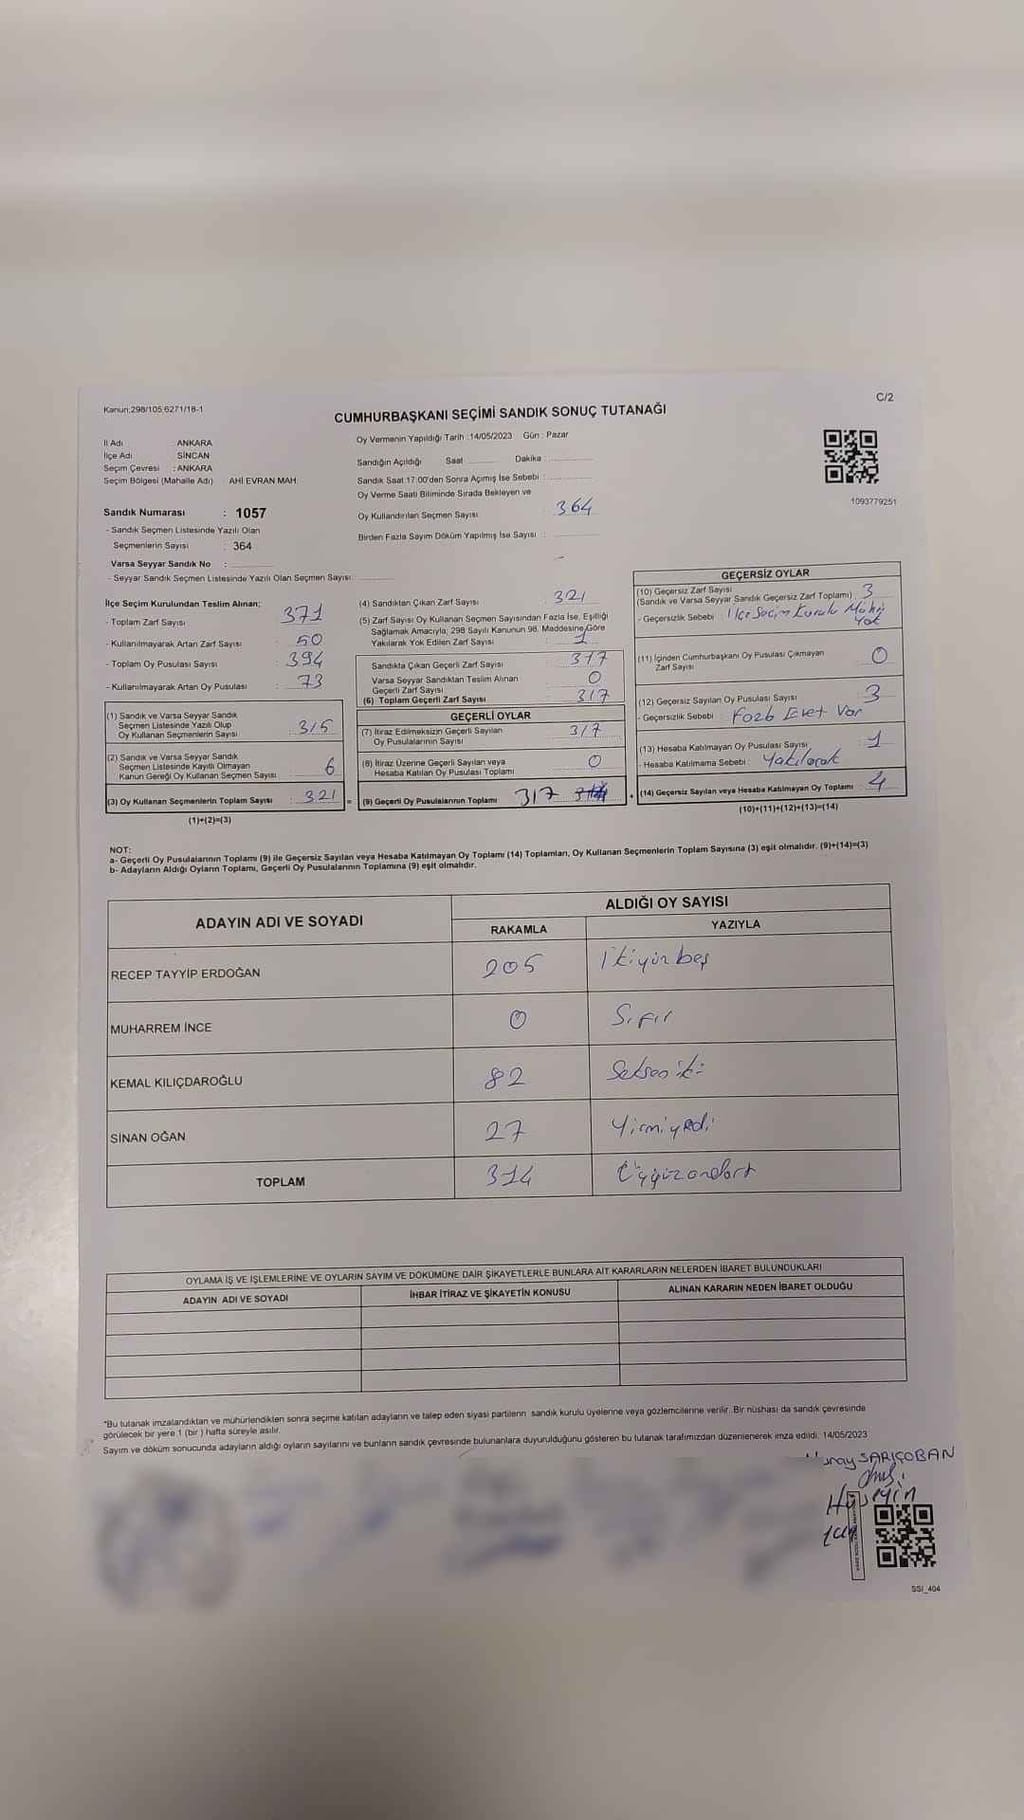 Kanun:298/105 6271/18-1
C/2
CUMHURBAŞKANI SEÇİMİ SANDIK SONUÇ TUTANAĞI
İl Adı ANKARA
İlçe Adı SİNCAN
Seçim Çevresi : ANKARA
Seçim Bölgesi (Mahalle Adı) AHİ EVRAN MAH.
Sandık Numarası : 1057
- Sandık Seçmen Listesinde Yazılı Olan
Seçmenlerin Sayısı : 364
Varsa Seyyar Sandık No :
- Seyyar Sandık Seçmen Listesinde Yazılı Olan Seçmen Sayısı:
Oy Vermenin Yapıldığı Tarih :14/05/2023 Gün : Pazar
Sandığın Açıldığı Saat Dakika :
Sandık Saat 17:00'den Sonra Açımış İse Sebebi :
Oy Verme Saati Bitiminde Sırada Bekleyen ve
Oy Kullandırılan Seçmen Sayısı 364
Birden Fazla Sayım Döküm Yapılmış İse Sayısı :
1093779251
İlçe Seçim Kurulundan Teslim Alınan:
- Toplam Zarf Sayısı : 371
- Kullanılmayarak Artan Zarf Sayısı : 50
- Toplam Oy Pusulası Sayısı : 394
- Kullanılmayarak Artan Oy Pusulası : 73
(1) Sandık ve Varsa Seyyar Sandık
Seçmen Listesinde Yazılı Olup
Oy Kullanan Seçmenlerin Sayısı : 315
(2) Sandık ve Varsa Seyyar Sandık
Seçmen Listesinde Kayıtlı Olmayan
Kanun Gereği Oy Kullanan Seçmen Sayısı : 6
(3) Oy Kullanan Seçmenlerin Toplam Sayısı : 321
(1)+(2)=(3)
(4) Sandıktan Çıkan Zarf Sayısı : 321
(5) Zarf Sayısı Oy Kullanan Seçmen Sayısından Fazla İse, Eşitliği
Sağlamak Amacıyla; 298 Sayılı Kanunun 98. Maddesine Göre
Yakılarak Yok Edilen Zarf Sayısı : 1
Sandıkta Çıkan Geçerli Zarf Sayısı : 317
Varsa Seyyar Sandıktan Teslim Alınan
Geçerli Zarf Sayısı : 0
(6) Toplam Geçerli Zarf Sayısı : 317
GEÇERLİ OYLAR
(7) İtiraz Edilmeksizin Geçerli Sayılan
Oy Pusulalarının Sayısı : 317
(8) İtiraz Üzerine Geçerli Sayılan veya
Hesaba Katılan Oy Pusulası Toplamı : 0
(9) Geçerli Oy Pusulalarının Toplamı 317
GEÇERSİZ OYLAR
(10) Geçersiz Zarf Sayısı
(Sandık ve Varsa Seyyar Sandık Geçersiz Zarf Toplamı) : 3
- Geçersizlik Sebebi : İlçe Seçim Kurulu Mührü
Yok
(11) İçinden Cumhurbaşkanı Oy Pusulası Çıkmayan
Zarf Sayısı : 0
(12) Geçersiz Sayılan Oy Pusulası Sayısı : 3
- Geçersizlik Sebebi Fazla Evet Var
(13) Hesaba Katılmayan Oy Pusulası Sayısı : 1
- Hesaba Katılmama Sebebi : Yakılacak
(14) Geçersiz Sayılan veya Hesaba Katılmayan Oy Toplamı : 4
(10)+(11)+(12)+(13)=(14)
NOT:
a- Geçerli Oy Pusulalarının Toplamı (9) ile Geçersiz Sayılan veya Hesaba Katılmayan Oy Toplamı (14) Toplamları, Oy Kullanan Seçmenlerin Toplam Sayısına (3) eşit olmalıdır. (9)+(14)=(3)
b- Adayların Aldığı Oyların Toplamı, Geçerli Oy Pusulalarının Toplamına (9) eşit olmalıdır.
ADAYIN ADI VE SOYADI
ALDIĞI OY SAYISI
RAKAMLA YAZIYLA
RECEP TAYYİP ERDOĞAN 205 İkiyüz beş
MUHARREM İNCE 0 Sıfır
KEMAL KILIÇDAROĞLU 82 Seksen iki
SİNAN OĞAN 27 Yirmiyedi
TOPLAM 314 Üçyüzondört
OYLAMA İŞ VE İŞLEMLERİNE VE OYLARIN SAYIM VE DÖKÜMÜNE DAİR ŞİKAYETLERLE BUNLARA AİT KARARLARIN NELERDEN İBARET BULUNDUKLARI
ADAYIN ADI VE SOYADI İHBAR İTİRAZ VE ŞİKAYETİN KONUSU ALINAN KARARIN NEDEN İBARET OLDUĞU
*Bu tutanak imzalandıktan ve mühürlendikten sonra seçime katılan adayların ve talep eden siyasi partilerin sandık kurulu üyelerine veya gözlemcilerine verilir. Bir nüshası da sandık çevresinde
görülecek bir yere 1 (bir) hafta süreyle asılır.
Sayım ve döküm sonucunda adayların aldığı oyların sayılarını ve bunların sandık çevresinde bulunanlara duyurulduğunu gösteren bu tutanak tarafımızdan düzenlenerek imza edildi. 14/05/2023
SARIÇOBAN
Hüseyin
SSI_404